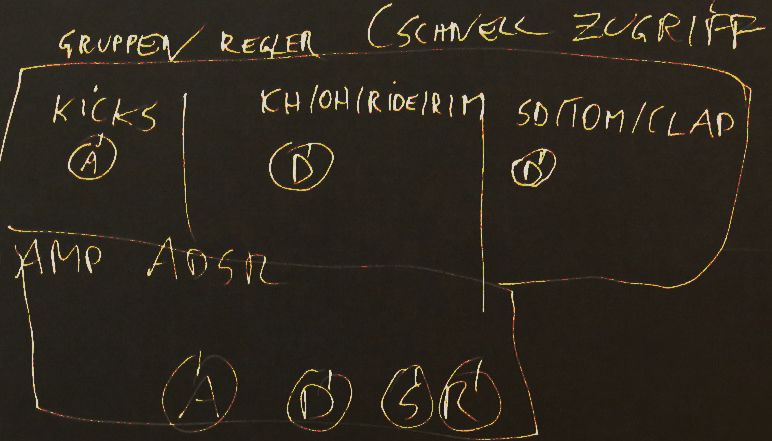 GRUPPEN/ REGLER (SCHNELL ZUGRIFF
KICKS KH/OH/RIDE/RIM SD/TOM/CLAP
A D D
AMP ADSR
A D S R